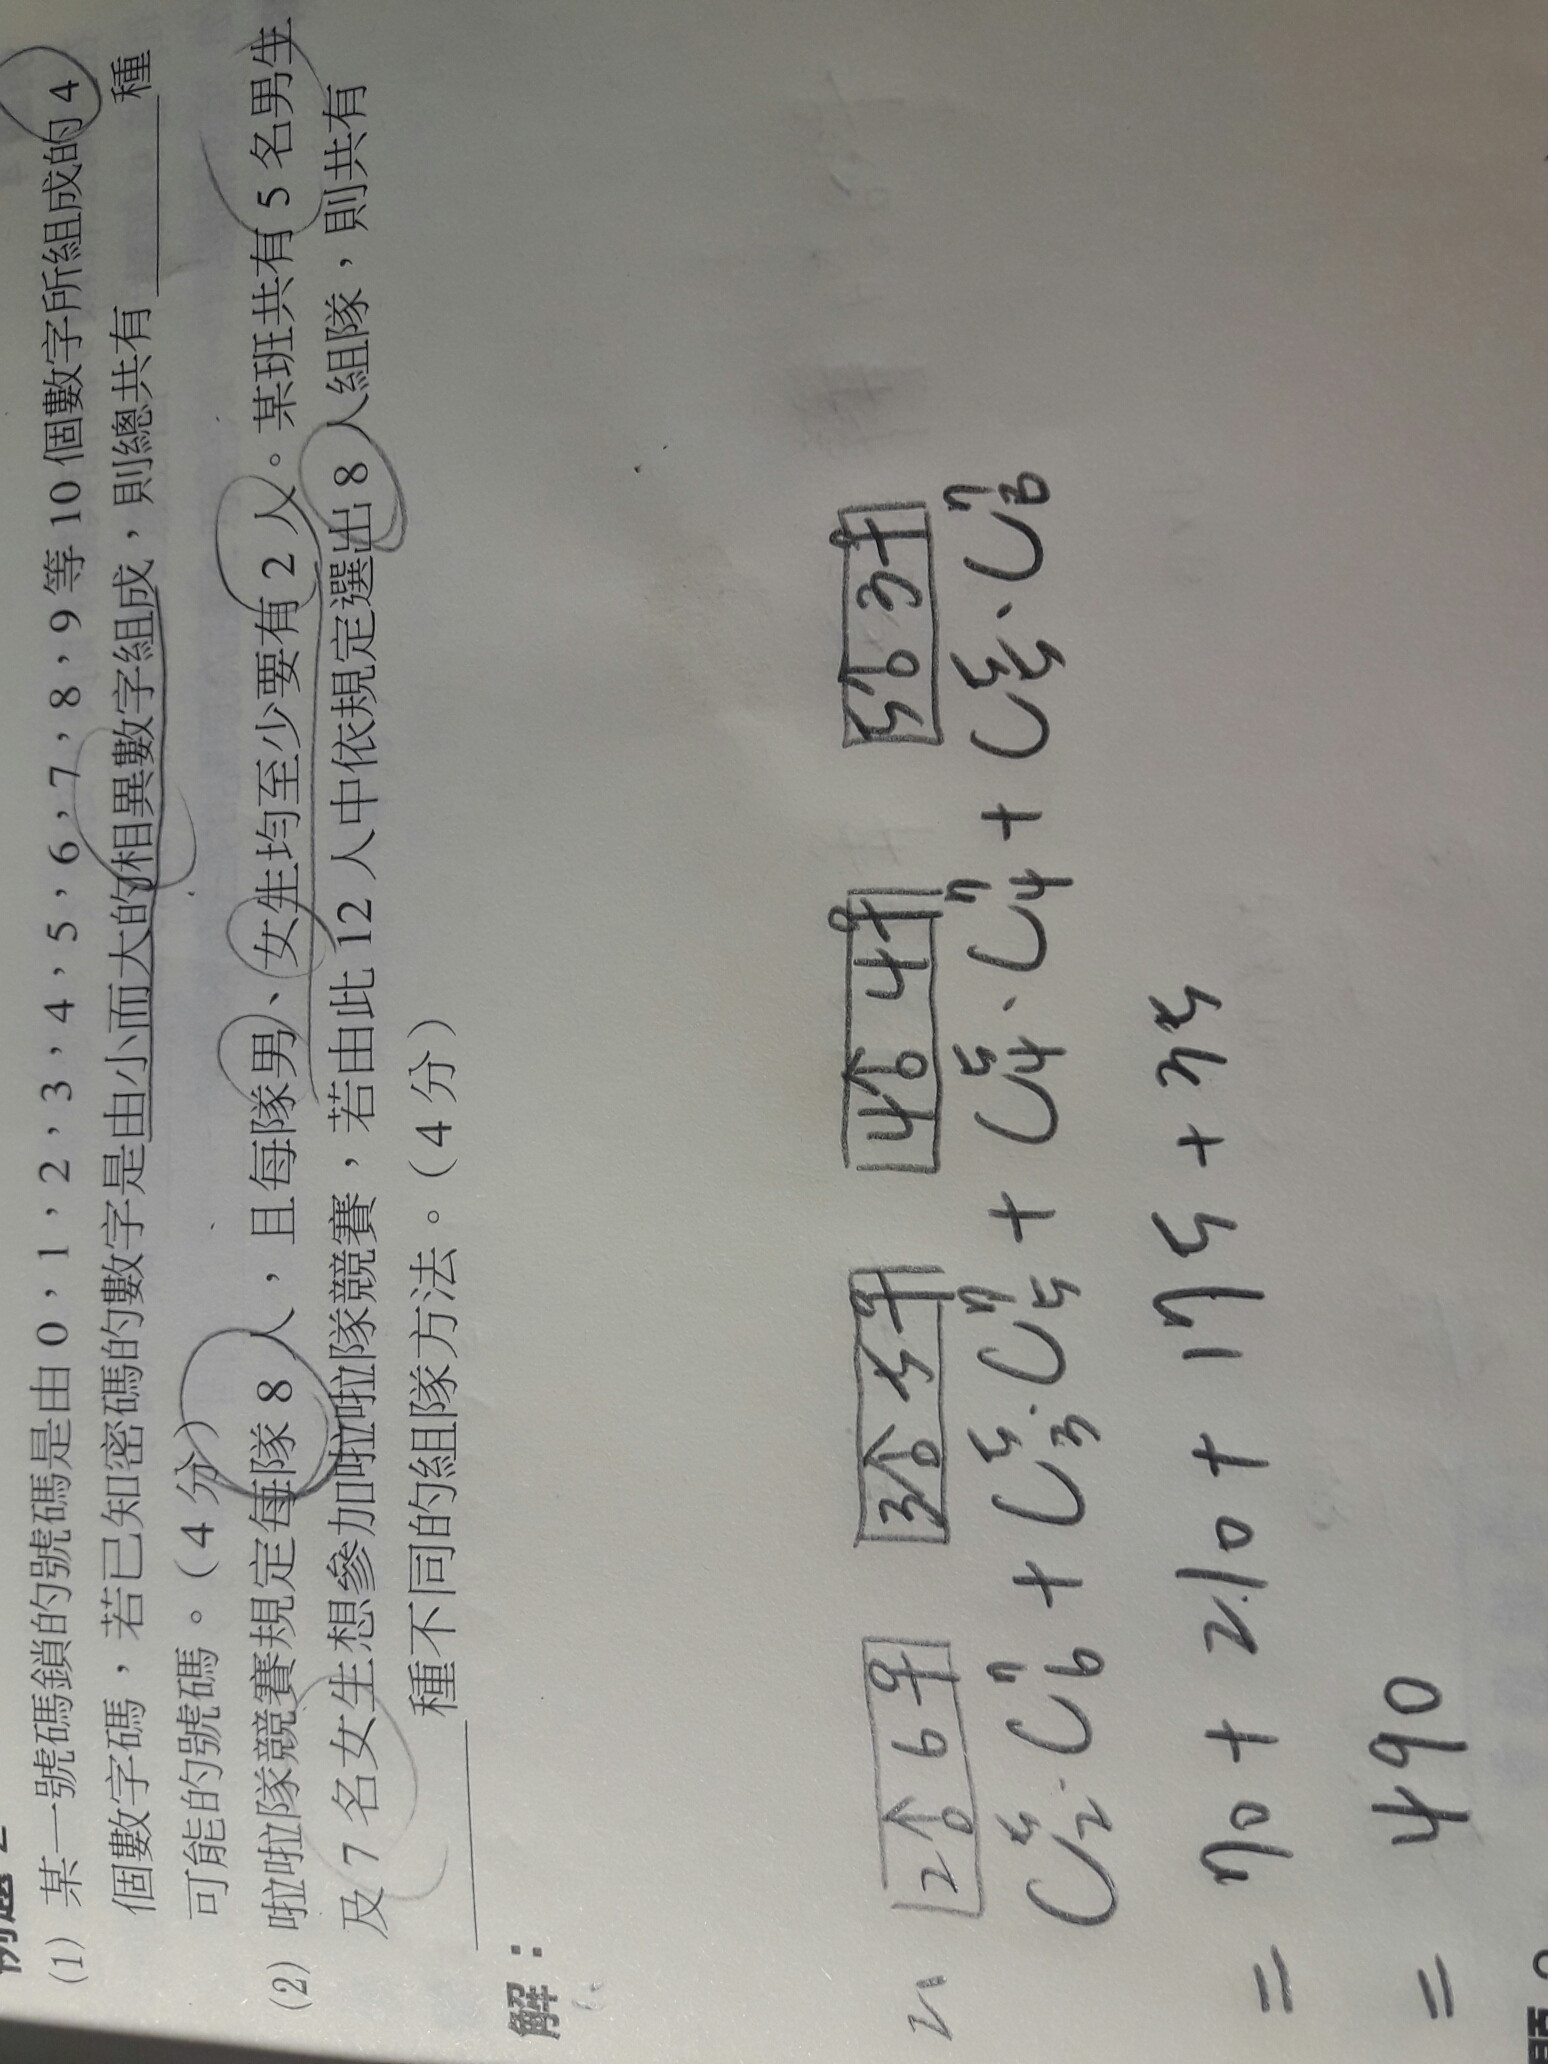 (1) 某一號碼鎖的號碼是由 0，1，2，3，4，5，6，7，8，9 等 10 個數字所組成的 4
個數字碼，若已知密碼的數字是由小而大的相異數字組成，則總共有______種
可能的號碼。（4 分）
(2) 啦啦隊競賽規定每隊 8 人，且每隊男、女生均至少要有 2 人。某班共有 5 名男生
及 7 名女生想參加啦啦隊競賽，若由此 12 人中依規定選出 8 人組隊，則共有
______種不同的組隊方法。（4 分）
解：
2、 2♂6♀ 3♂5♀ 4♂4♀ 5♂3♀
C⁵₂·C⁷₆ + C⁵₃·C⁷₅ + C⁵₄·C⁷₄ + C⁵₅·C⁷₃
= 70 + 210 + 175 + 35
= 490